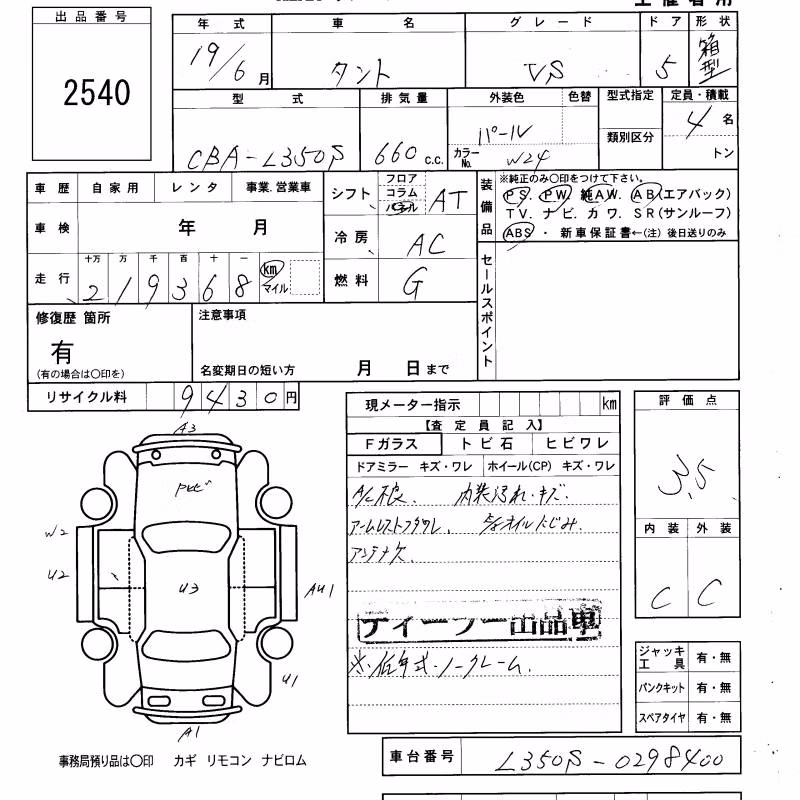 出品番号
2540
年式
19/6月
車名
タント
グレード
VS
ドア
5
形状
箱型
型式
CBA-L350S
排気量
660 c.c.
外装色
パール
色替
カラーNo.
W24
型式指定
類別区分
定員・積載
4名
トン
車歴 自家用 レンタ 事業.営業車
車検 年 月
走行
十万 万 千 百 十 一
2 1 9 3 6 8
km
マイル
シフト
フロア
コラム
パネル
AT
冷房
AC
燃料
G
装備品
※純正のみ〇印をつけて下さい。
PS. PW. 純AW. AB(エアバック)
TV. ナビ. カワ. SR(サンルーフ)
ABS ・ 新車保証書←(注) 後日送りのみ
セールスポイント
修復歴 箇所
有
(有の場合は〇印を)
注意事項
名変期日の短い方 月 日まで
リサイクル料 9430円
現メーター指示 km
【査定員記入】
Fガラス トビ石 ヒビワレ
ドアミラー キズ・ワレ ホイール(CP) キズ・ワレ
A/C不良. 内装汚れ・キズ.
アームレストフタワレ. オイルにじみ.
アンテナ欠
ディーラー出品車
※.低年式.ノークレーム.
評価点
3.5
内装 外装
C C
ジャッキ工具 有・無
パンクキット 有・無
スペアタイヤ 有・無
A3
W2
U2
U3
AU1
U1
A1
事務局預り品は〇印 カギ リモコン ナビロム
車台番号
L350S-0298400